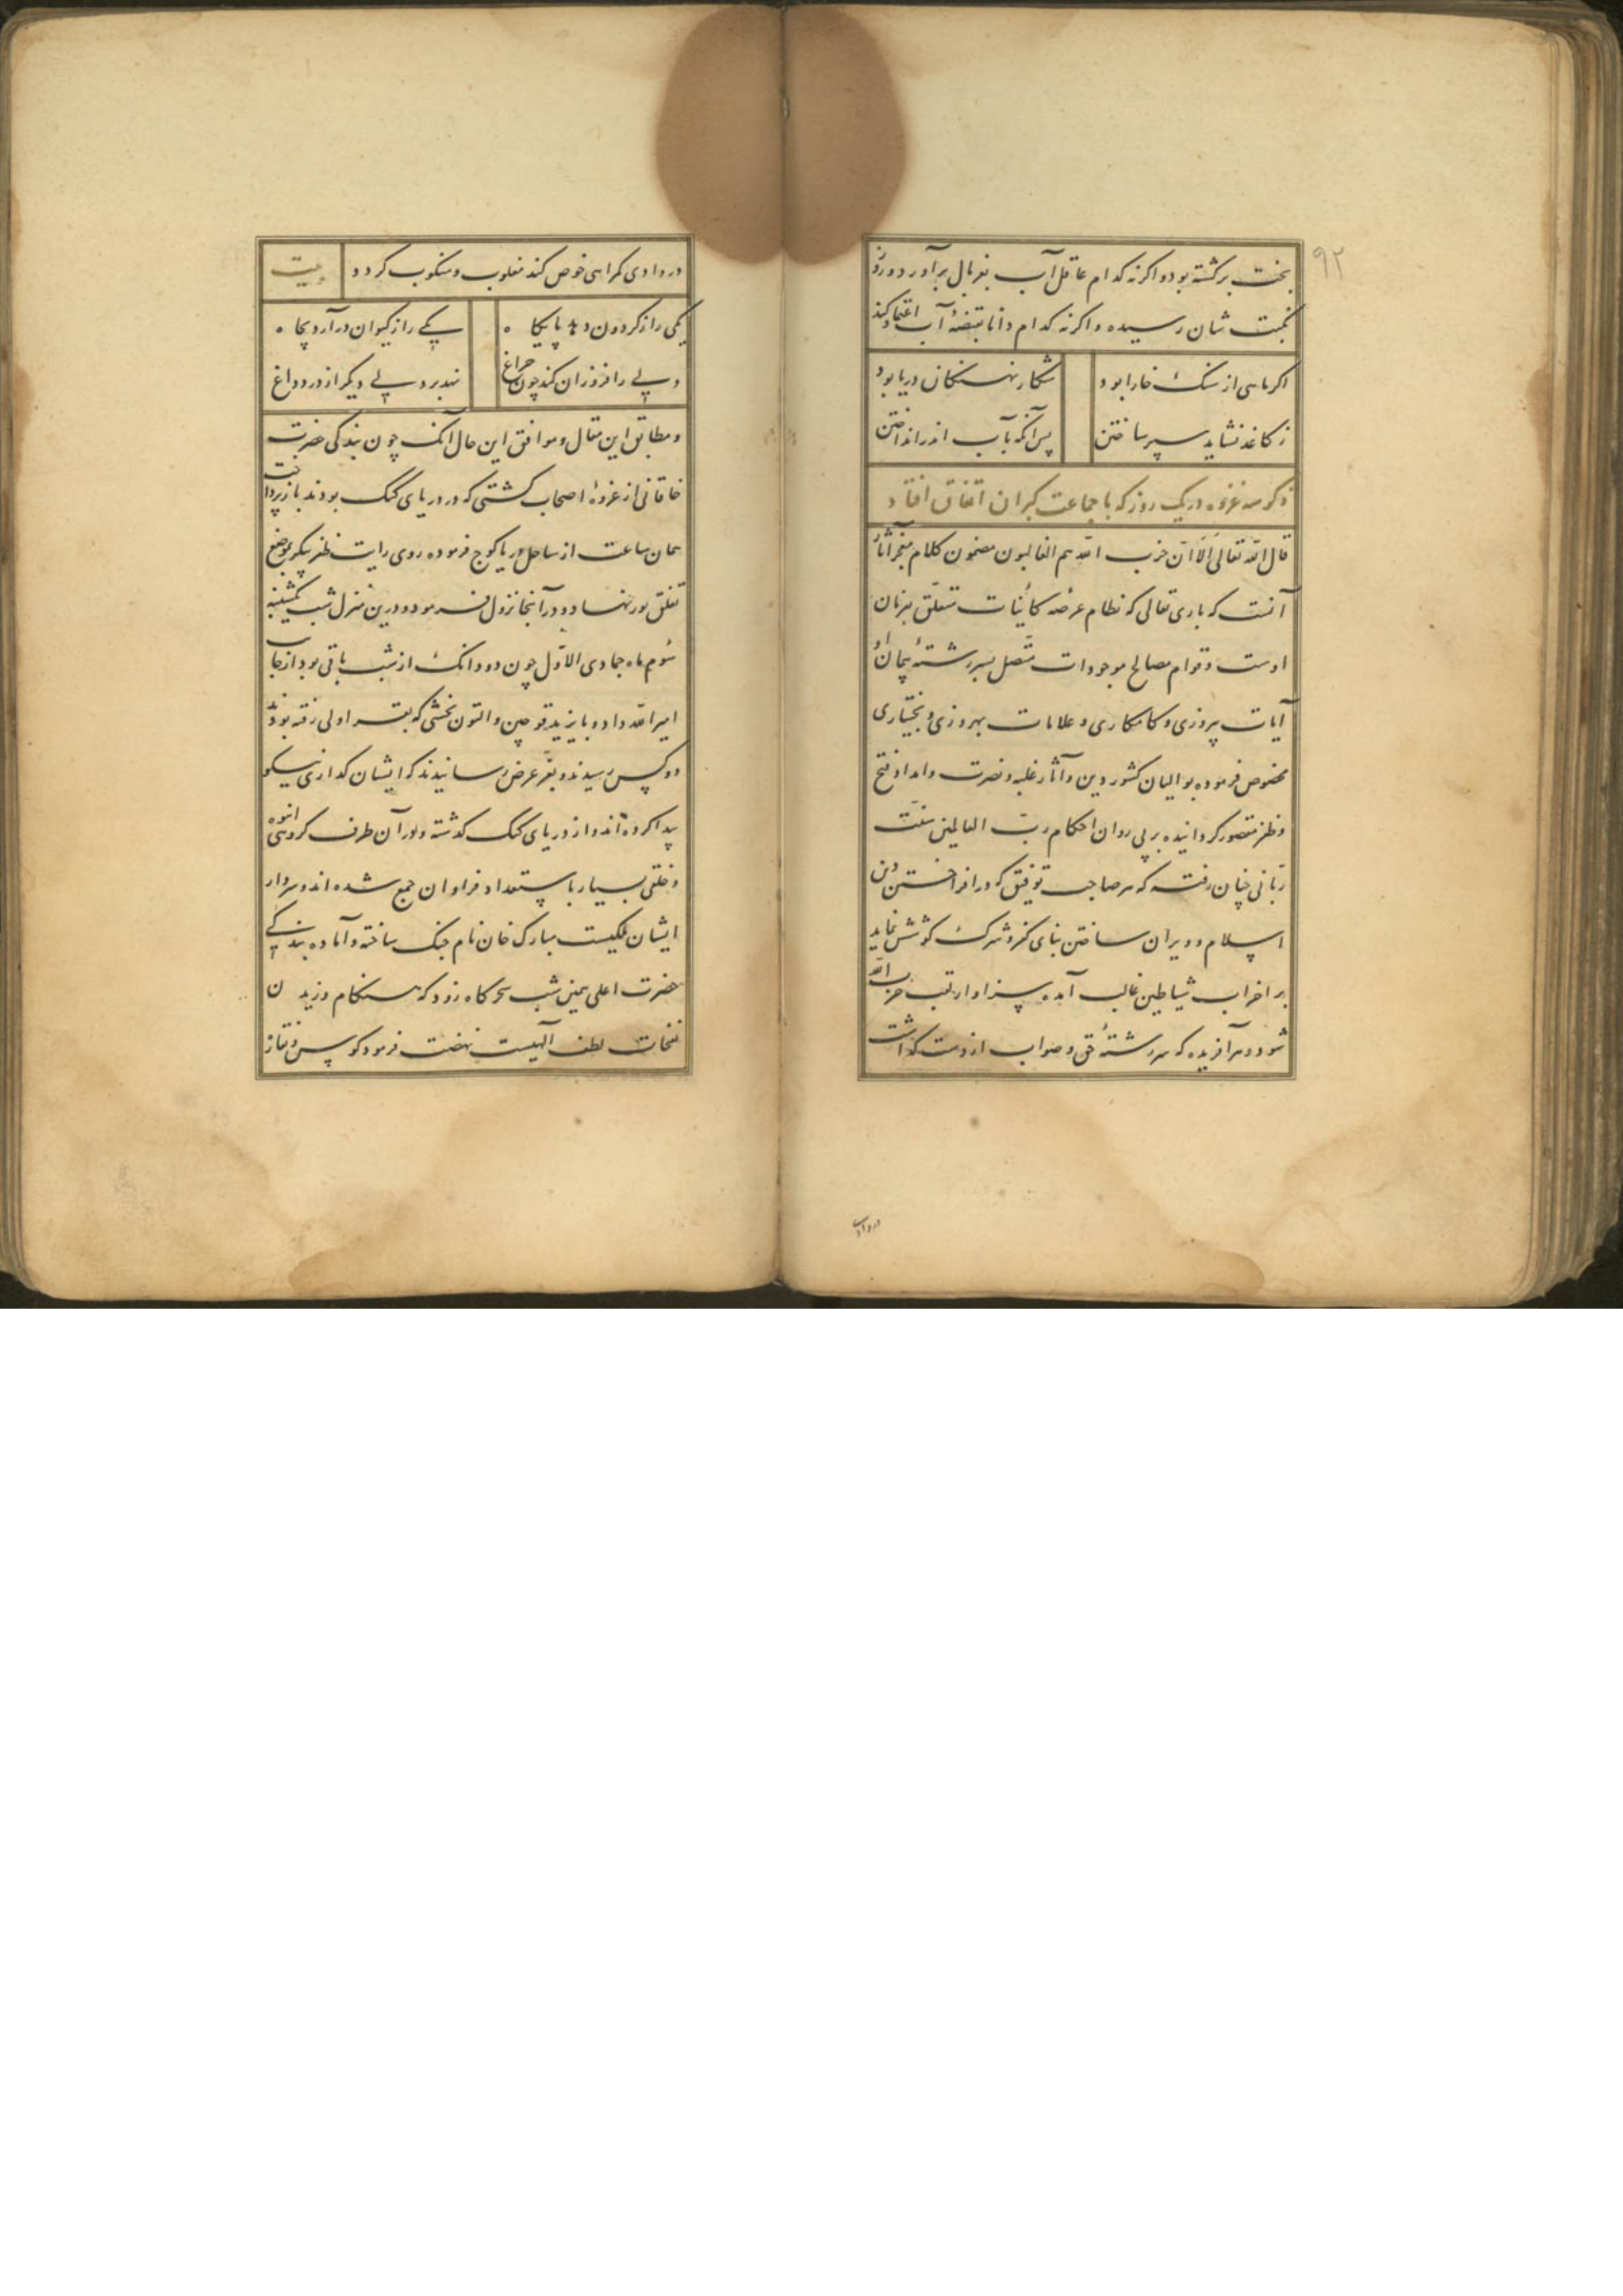 ۹۲
بخت برکشته بود و اکرنه کدام عاقل آب بغربال برآورد و روز
نکبت شان رسیده و اکرنه کدام دانا بقبضهٔ آب اعتماد کند
اکر ماهی از سنک خارا بود
شکار نهنکان دریا بود
ز کاغذ نشاید سپر ساختن
پس آنکه بآب اندر انداختن
ذکر سه غزوه در یک روز که با جماعت کبران اتفاق افتاد
قال الله تعالی الا ان حزب الله هم الغالبون مضمون کلام
آنست که باری تعالی که نظام عرصه کائنات متعلق بفرمان
اوست و قوام مصالح موجودات متصل بسررشتهٔ پیمان او
آیات پیروزی و کامکاری و علامات بهروزی و بختیاری
مخصوص فرموده بوالیان کشور دین و آثار غلبه و نصرت و امداد فتح
و ظفر مقصور کردانیده بر پی روان احکام رب العالمین سنت
ربانی چنان رفته که هر صاحب توفیق که در افراختن دین
اسلام و ویران ساختن بنای کفر و شرک کوشش نماید
بر احزاب شیاطین غالب آمده سزاوار لقب حزب الله
شود و هر آفریده که سررشتهٔ حق و صواب از دست کذاشت
در وادی
در وادی کمراهی خوض کند مغلوب و منکوب کردد
بیت
یکی را ز کردون دهد پایکاه
یکی را ز کیوان در آرد بچاه
دلی را فروزان کند چون چراغ
نهد بر دلی دیکر از درد داغ
و مطابق این مقال و موافق این حال آنک چون بندکی حضرت
خاقانی از غزوهٔ اصحاب کشتی که در دریای کنک بودند باز پرداخت
همان ساعت از ساحل دریا کوچ فرموده روی رایت ظفر پیکر بموضع
تغلق پور نهاد و در آنجا نزول فرمود و درین منزل شب یکشنبه
سوم ماه جمادی الاول چون دو دانک از شب باقی بود از جانب
امیر الله داد و بایزید قوچین و التون بخشی که رفته بودند
دو کس رسیدند و بعز عرض رسانیدند که ایشان کداری نیکو
پیدا کرده اند و از دریای کنک کذشته و در آن طرف کروهی انبوه
و خلقی بسیار با استعداد فراوان جمع شده اند و سردار
ایشان ملکیست مبارک خان نام جنک ساخته و آماده بندکی
حضرت اعلی شب سحرکاه زود که هنکام وزیدن
نفحات لطف آلهیست نهضت فرمود کوس و نقاره